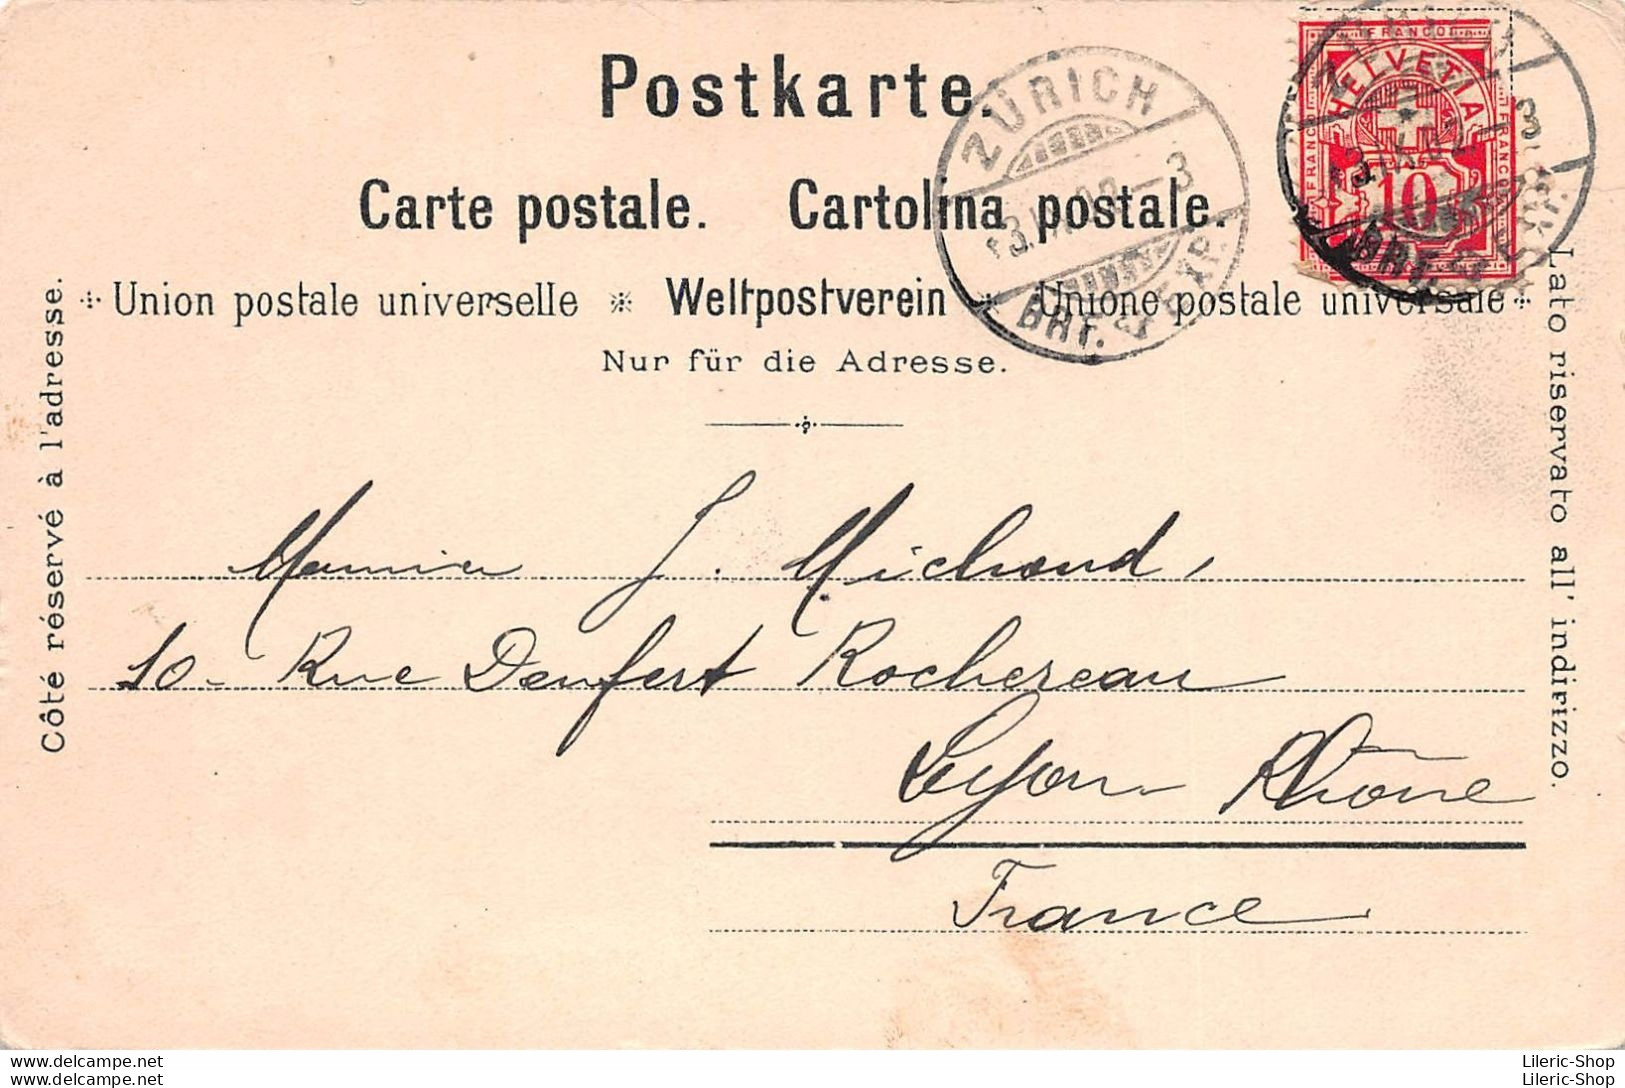 Postkarte.
Carte postale. Cartolina postale.
Union postale universelle ※ Weltpostverein ※ Unione postale universale
Nur für die Adresse.
Côté réservé à l'adresse.
Lato riservato all' indirizzo.
FRANCO
HELVETIA
FRANCO
FRANCO
10
ZÜRICH
3
BRF. EXP.
3
BRF. EXP.
J. Michoud,
10 - Rue Denfert Rochereau
Lyon - Rhône
France
Lileric-Shop
Lileric-Shop
https://www.delcampe.net
https://www.delcampe.net